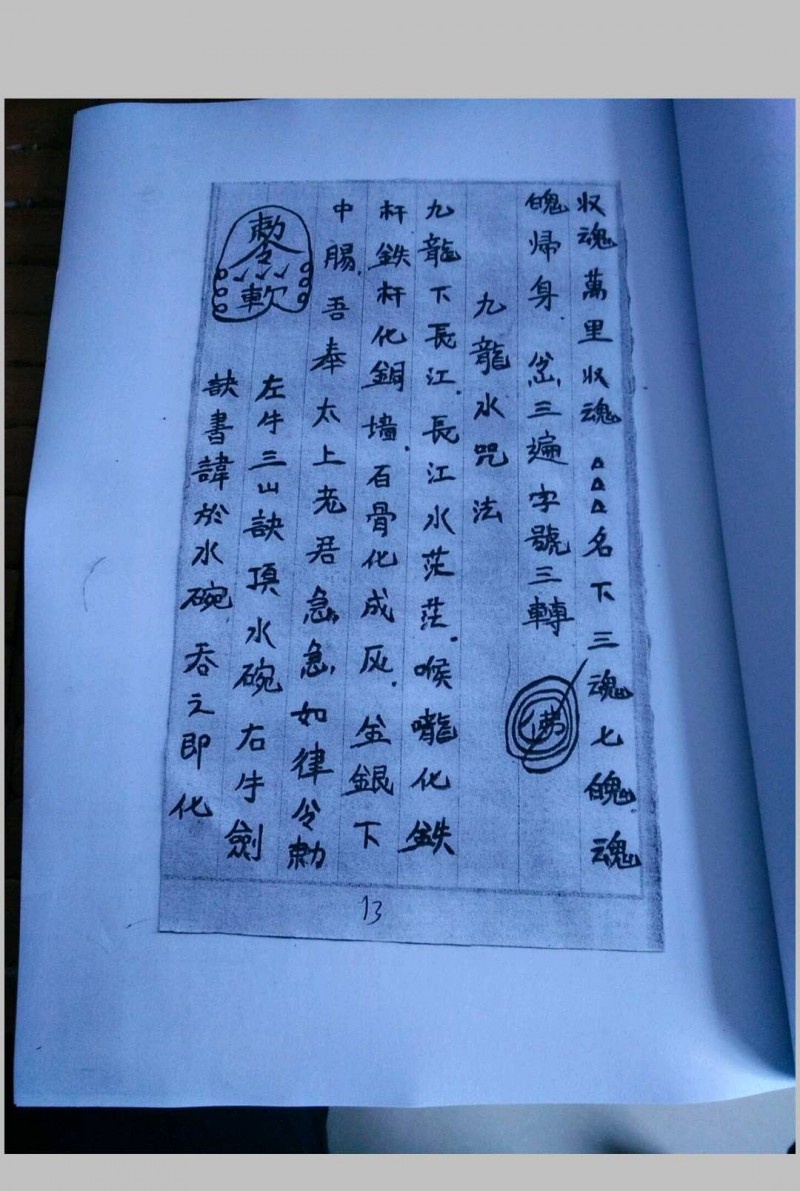 収魂萬里収魂△△△名下三魂七魄魂
魄歸身 岔三遍字號三轉
佛
九龍水咒法
九龍下長江.長江水茫茫.喉嚨化鉄
杆鉄杆化銅墙.石骨化成灰.金銀下
中腸.吾奉太上老君急急如律令勅
勅令
左牛三山訣頂水碗右牛劍
訣書諱於水碗吞之即化
13